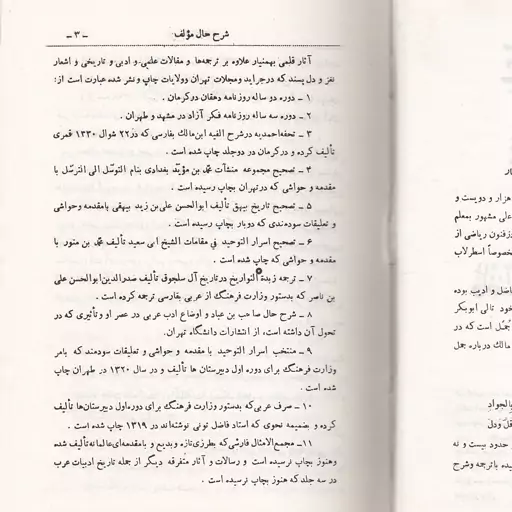 شرح حال مؤلف
– ۳ –
آثار قلمی بهمنیار علاوه بر ترجمه‌ها و مقالات علمی و ادبی و تاریخی و اشعار
نغز و دل پسند که در جراید و مجلات تهران و ولایات چاپ و نشر شده عبارت است از:
۱ – دوره دو ساله روزنامه دهقان در کرمان .
۲ – دوره سه ساله روزنامه فکر آزاد در مشهد و طهران .
۳ – تحفه احمدیه در شرح الفیه ابن مالك بفارسی که در ۲۲ شوال ۱۳۳۰ قمری
تألیف کرده و در کرمان در دو جلد چاپ شده است .
۴ – تصحیح مجموعه منشآت محمد بن مؤید بغدادی بنام التوسّل الی الترسّل با
مقدمه و حواشی که در تهران بچاپ رسیده است .
۵ – تصحیح تاریخ بیهق تألیف ابوالحسن علی بن زید بیهقی با مقدمه و حواشی
و تعلیقات سودمندی که دو بار بچاپ رسیده است .
۶ – تصحیح اسرار التوحید فی مقامات الشیخ ابی سعید تألیف محمد بن منور با
مقدمه و حواشی که چاپ شده است .
۷ – ترجمه زبدة التواریخ در تاریخ آل سلجوق تألیف صدرالدین ابوالحسن علی
بن ناصر که بدستور وزارت فرهنگ از عربی بفارسی ترجمه کرده است .
۸ – شرح حال صاحب بن عباد و اوضاع ادب عربی در عصر او و تأثیری که در
تحول آن داشته است، از انتشارات دانشگاه تهران.
۹ – منتخب اسرار التوحید با مقدمه و حواشی و تعلیقات سودمند که بامر
وزارت فرهنگ برای دوره اول دبیرستان ها تألیف و در سال ۱۳۲۰ در طهران چاپ
شده است .
۱۰ – صرف عربی که بدستور وزارت فرهنگ برای دوره اول دبیرستان‌ها تألیف
کرده و بضمیمه نحوی که استاد فاضل تونی نوشته‌اند در ۱۳۱۹ چاپ شده است .
۱۱ – مجمع الامثال فارسی که بطرزی تازه و بدیع و با مقدمه‌ای عالمانه تألیف شده
و هنوز بچاپ نرسیده است و رسالات و آثار متفرقه دیگر از جمله تاریخ ادبیات عرب
در سه جلد که هنوز بچاپ نرسیده است .
هزار و دویست و
علی مشهور بمعلم
ذوفنون ریاضی از
خصوصاً اسطرلاب
فاضل و ادیب بوده
خود تالی ابوبکر
جُمَل است که در
مالك درباره جمل
بالجواد
قلّ وَدلّ
حدود بیست و نه
با ترجمه و شرح